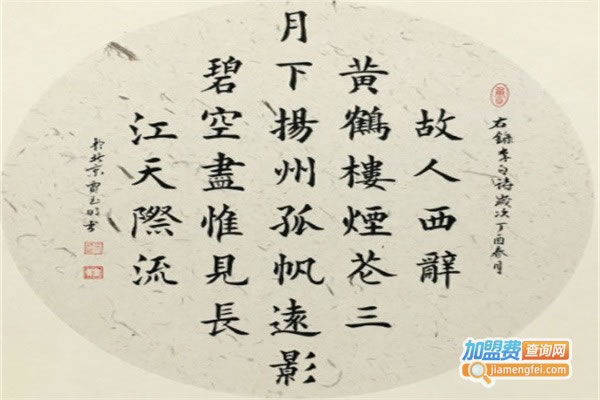 故人西辭
黄鶴樓煙花三
月下揚州孤帆遠影
碧空盡惟見長
江天際流
右録李白詩歲次丁酉春月
於北京
加盟费查询网
jiamengfei.com